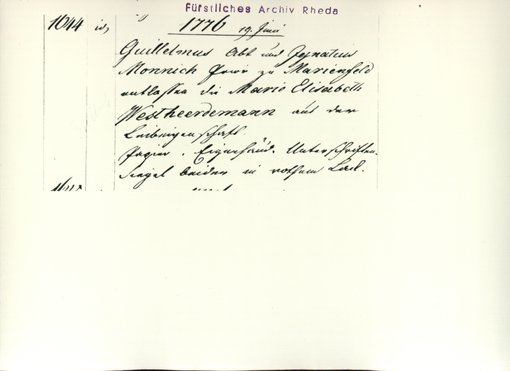 Fürstliches Archiv Rheda
1644 1776 19. Juni
Guillelmus Abt und Ignatius
Monnich Prior zu Marienfeld
entlassen die Marie Elisabeth
Westheerdemann aus der
Leibeigenschaft.
Papier. Eigenhänd. Unterschriften
Siegel beider in rothem Lack.